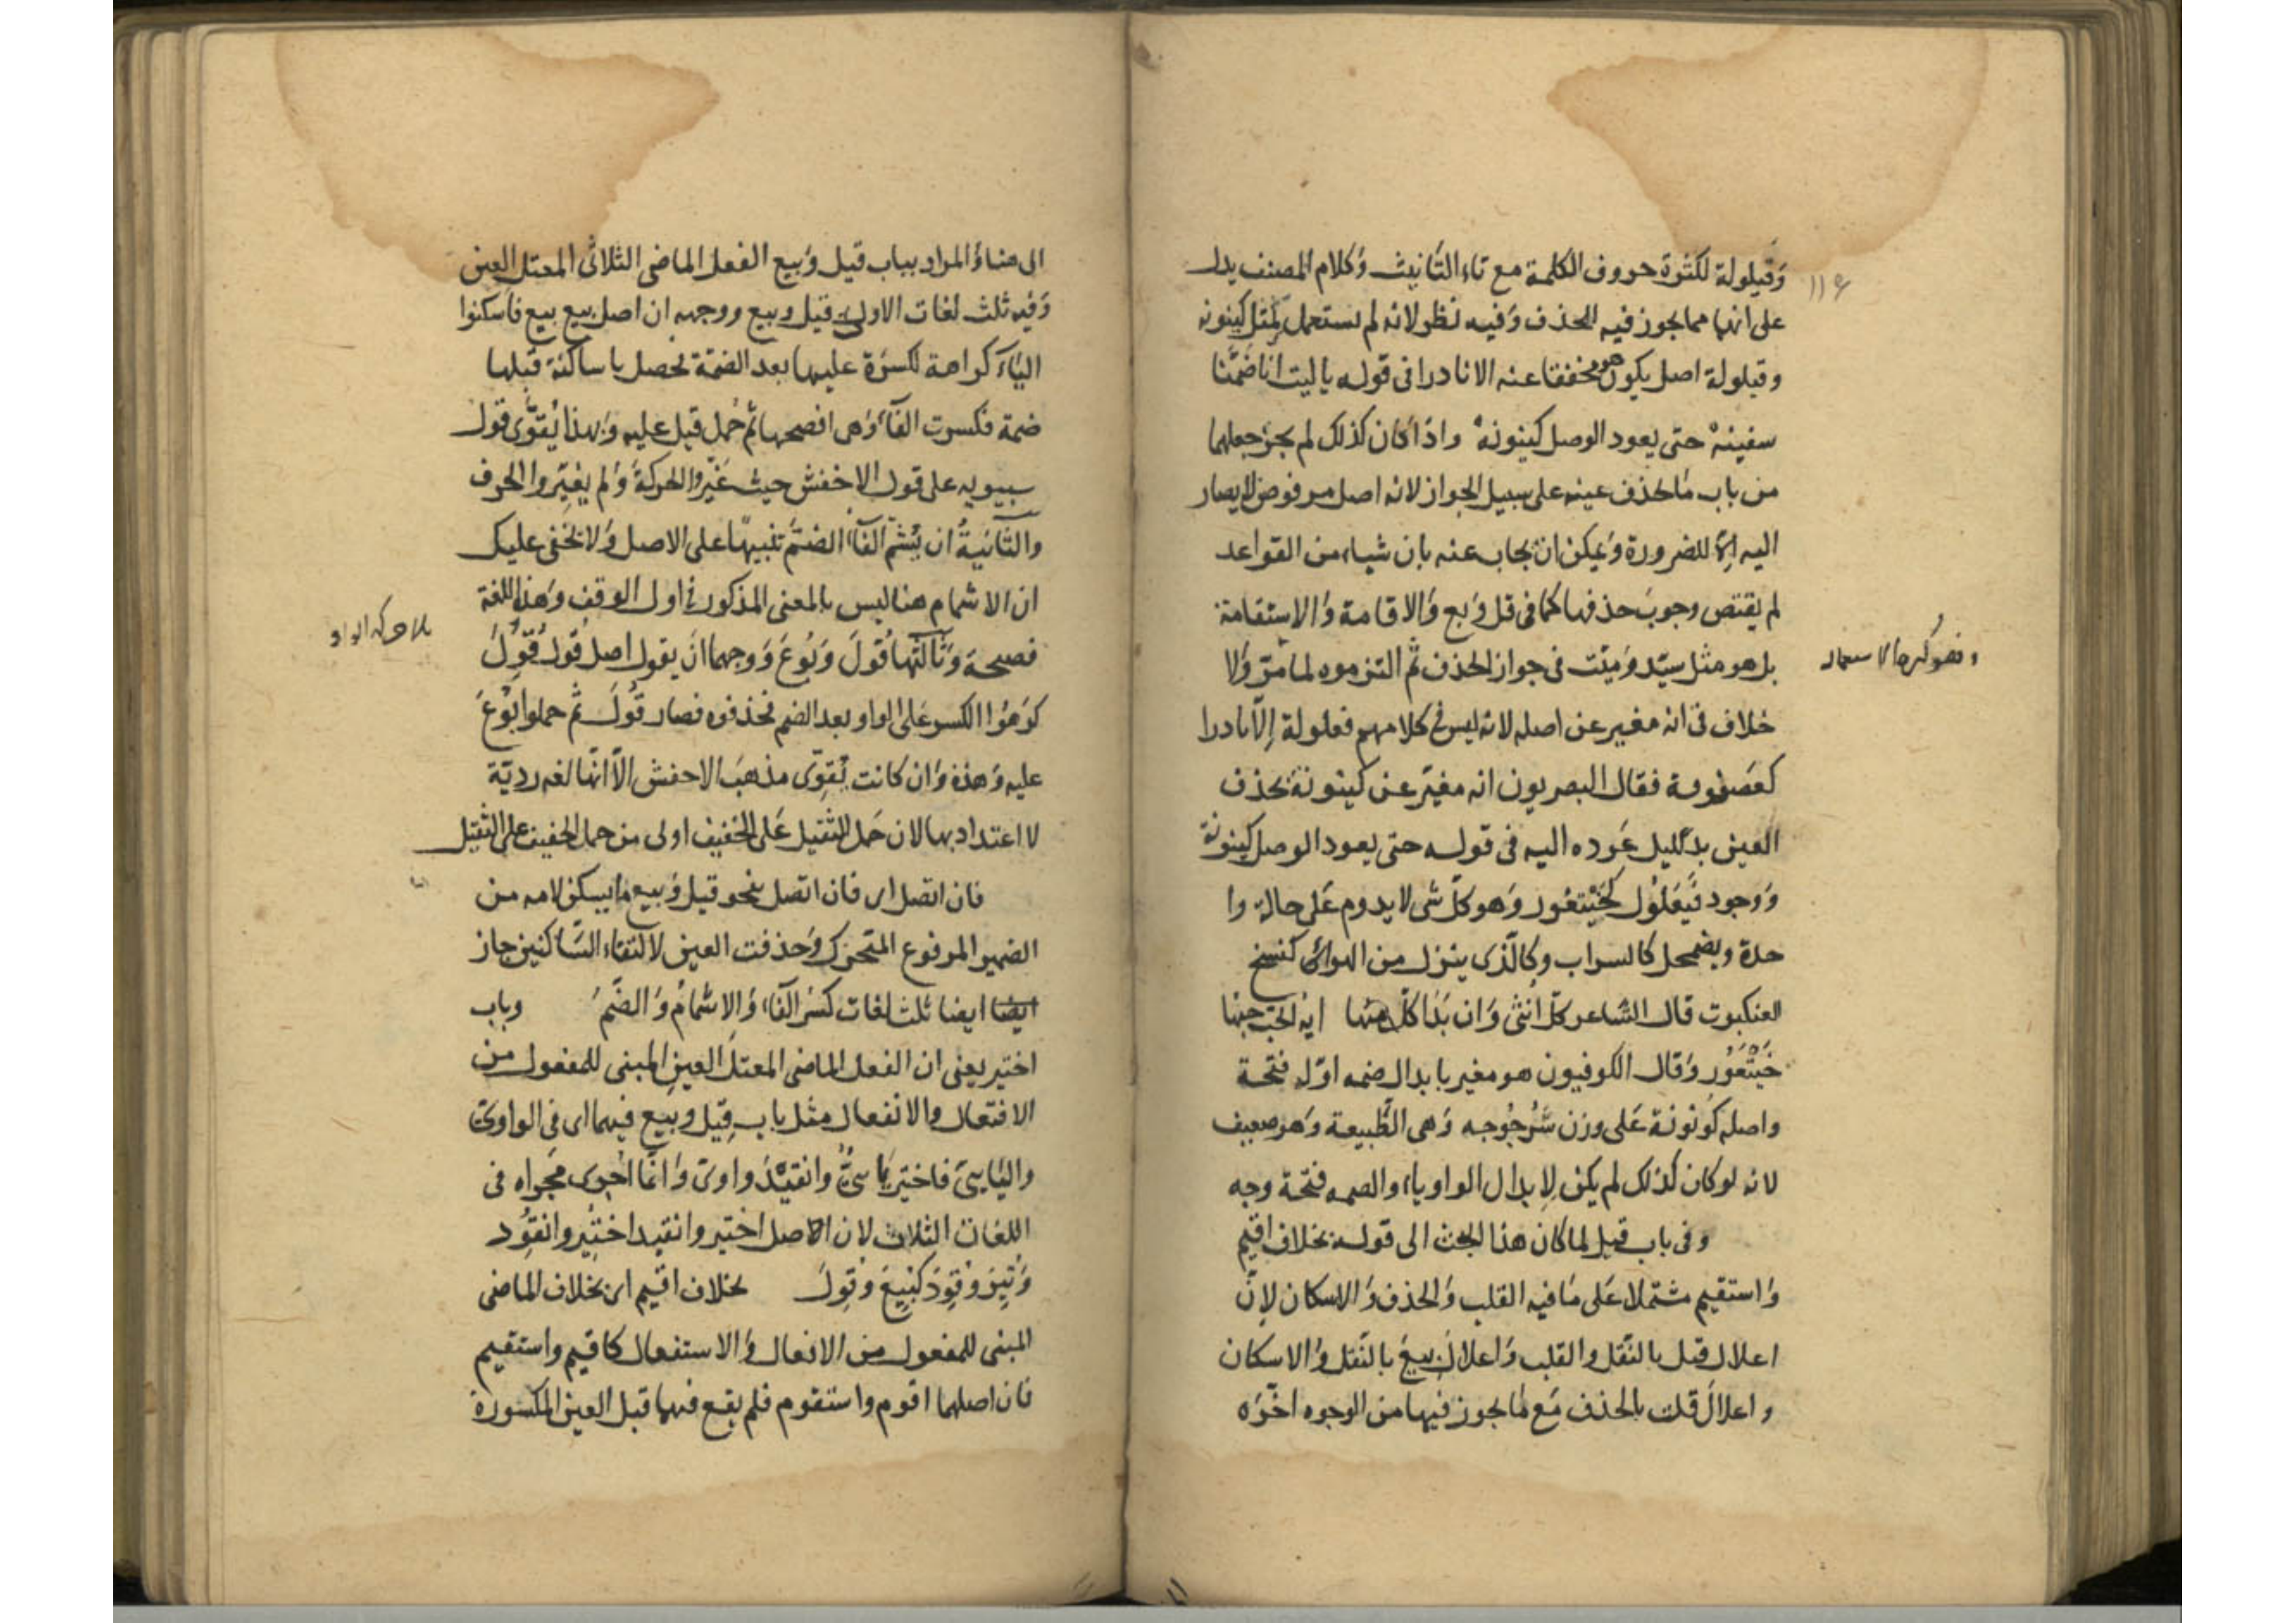 وقيلولة لكثرة حروف الكلمة مع تاء التانيث وكلام المصنف يدل
على انها مما يجوز فيه الحذف وفيه نظر لانه لم يستعمل لمثل كينونة
وقيلولة اصل يكون هو مخففا عنه الا نادرا فى قوله يا ليت انا ضمنا
سفينة حتى يعود الوصل كينونة واذا كان كذلك لم يجز جعلهما
من باب ما يحذف عينه على سبيل الجواز لانه اصل مرفوض لا يصار
اليه الا للضرورة ويمكن ان يجاب عنه بان شيا من القواعد
لم يقتض وجوب حذفها كما فى قل وبع والاقامة والاستقامة
بل هو مثل سيد وميت فى جواز الحذف ثم التزموه لما مر ولا
خلاف فى انه مغير عن اصله لانه ليس فى كلامهم فعلولة إلا نادرا
كصعفوقة فقال البصريون انه مغير عن كينونة بحذف
العين بدليل عوده اليه فى قوله حتى يعود الوصل كينونة
ووجود فيعلول كخيتعور وهو كل شى لا يدوم على حالة وا
حدة ويضمحل كالسراب وكالذى ينزل من الهواء كنسج
العنكبوت قال الشاعر كل انثى وان بدا لك منها اية الحب حبها
خيتعور وقال الكوفيون هو مغير بابدال ضمه اوله فتحة
واصله كونونة على وزن سرجوجه وهى الطبيعة وهو ضعيف
لانه لو كان كذلك لم يكن لابدال الواو ياء والضمه فتحة وجه
وفى باب قيل لما كان هذا البحث الى قوله بخلاف اقيم
واستقيم مشتملا على ما فيه القلب والحذف والاسكان لان
اعلال قيل بالنقل والقلب واعلال بيع بالنقل والاسكان
واعلال قلت بالحذف مع ما يجوز فيها من الوجوه اخره
الى هنا والمراد بباب قيل وبيع الفعل الماضى الثلاثى المعتل العين
وفيه ثلث لغات الاولى قيل وبيع ووجهه ان اصل بيع بيع فاسكنوا
الياء كراهة لكسرة عليها بعد الضمة لحصل يا ساكنة قبلها
ضمة فكسرت الفاء وهى افصحها ثم حمل قيل عليه وبهذا يقوى قول
سيبويه على قول الاخفش حيث غيروا الحركة ولم يغيروا الحرف
والثانية ان يشم الفاء الضم تنبيها على الاصل ولا يخفى عليك
ان الاشمام هنا ليس بالمعنى المذكور فى اول الوقف وهذه اللغة
فصيحة وثالثها قول وبوع ووجهها ان يقول اصل قول قول
كرهوا الكسر على الواو بعد الضم فحذفوه فصار قول ثم حملوا بوع
عليه وهذه وان كانت يقوى مذهب الاخفش الا انها لغه ردية
لا اعتداد بها لان حمل الثقيل على الخفيف اولى من حمل الخفيف على الثقيل
فان اتصل اى فان اتصل بنحو قيل وبيع ما يسكن لامه من
الضمير المرفوع المتحرك وحذفت العين لالتقاء الساكنين جاز
ايضا ايضا ثلث لغات كسر الفاء والاشمام والضم وباب
اختير يعنى ان الفعل الماضى المعتل العين المبنى للمفعول من
الافتعال والانفعال مثل باب قيل وبيع فيهما اى فى الواوى
واليايى فاختير يايى وانقيد واوى وانما اجرى مجراه فى
اللغات الثلاث لان الاصل اختير وانقيد اختير وانقود
وتير وقود كبيع وقول بخلاف اقيم اى بخلاف الماضى
المبنى للمفعول من الافعال والاستفعال كاقيم واستقيم
فان اصلهما اقوم واستقوم فلم يقع فيهما قبل العين المكسورة